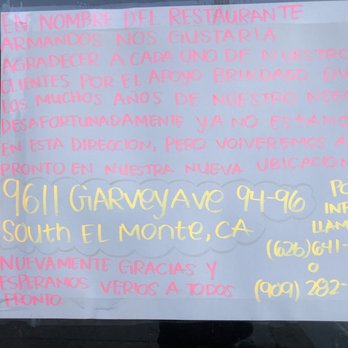 EN NOMBRE DEL RESTAURANTE
ARMANDOS NOS GUSTARIA
AGRADECER A CADA UNO DE NUESTRO
CLIENTES POR EL APOYO BRINDADO
LOS MUCHOS AÑOS DE NUESTRO
DESAFORTUNADAMENTE YA NO
EN ESTA DIRECCION, PERO VOLVEREMOS A
PRONTO EN NUESTRA NUEVA UBICACION
9611 GARVEY AVE 94-96
SOUTH EL MONTE, CA
(626) 641-
O
(909) 282-
NUEVAMENTE GRACIAS Y
ESPERAMOS VERLOS A TODOS
PRONTO